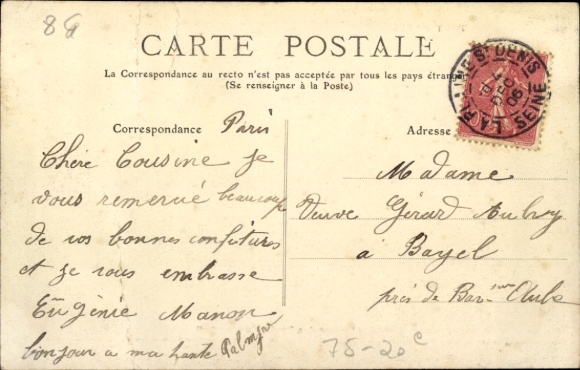 86
CARTE POSTALE
La Correspondance au recto n'est pas acceptée par tous les pays étrangers
(Se renseigner à la Poste)
LA PLAINE ST DENIS
06
SEINE
Correspondance Paris
Chère Cousine je
vous remercie beaucoup
de vos bonnes confitures
et je vous embrasse
Eugénie Manon
bonjour a ma tante Palmyre
Adresse
Madame
Veuve Gérard Aubry
à Bayel
près de Bar-sur-Aube
75-20e